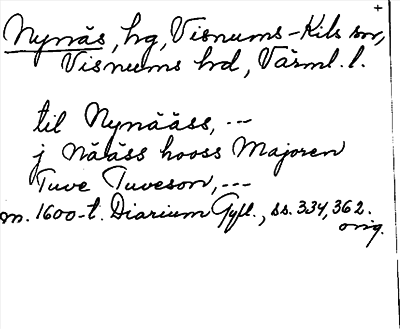 +
Nynäs, hg, Visnums-Kils sn,
Visnums hd, Värml. l.
til Nynääss, ---
j Nääss hooss Majoren
Tuve Tuveson, ---
m. 1600-t. Diarium Gyll., ss. 334, 362.
orig.